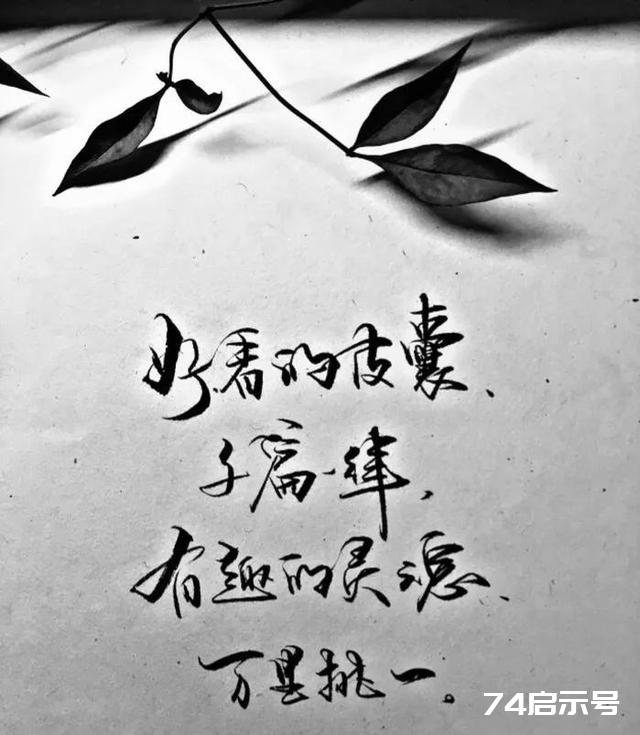 好看的皮囊、
千篇一律、
有趣的灵魂、
万里挑一。
74启示号